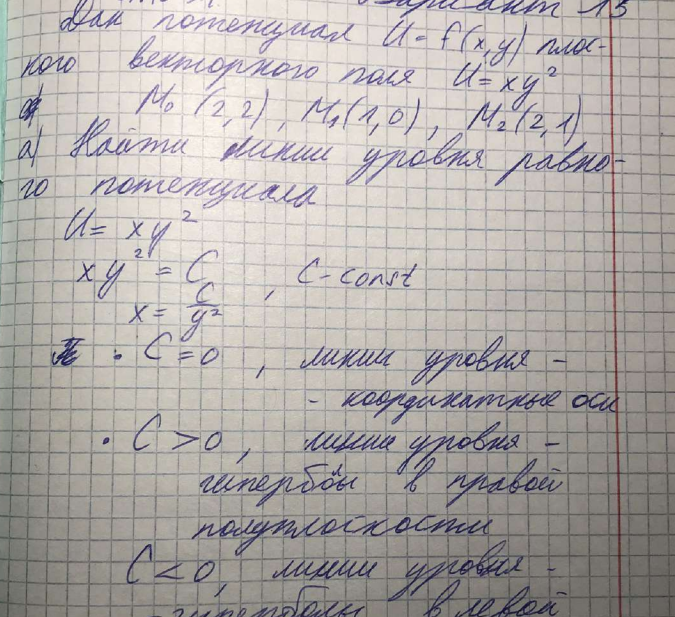 Вариант 13
Дан потенциал U = f(x,y) плос-
кого векторного поля U = xy²
M₀ (2,2), M₁(1,0), M₂(2,1)
а) Найти линии уровня равно-
го потенциала
U = xy²
xy² = C, C - const
x = C/y²
• C = 0, линии уровня -
- координатные оси
• C > 0, линии уровня -
гиперболы в правой
полуплоскости
C < 0, линии уровня -
- гиперболы в левой